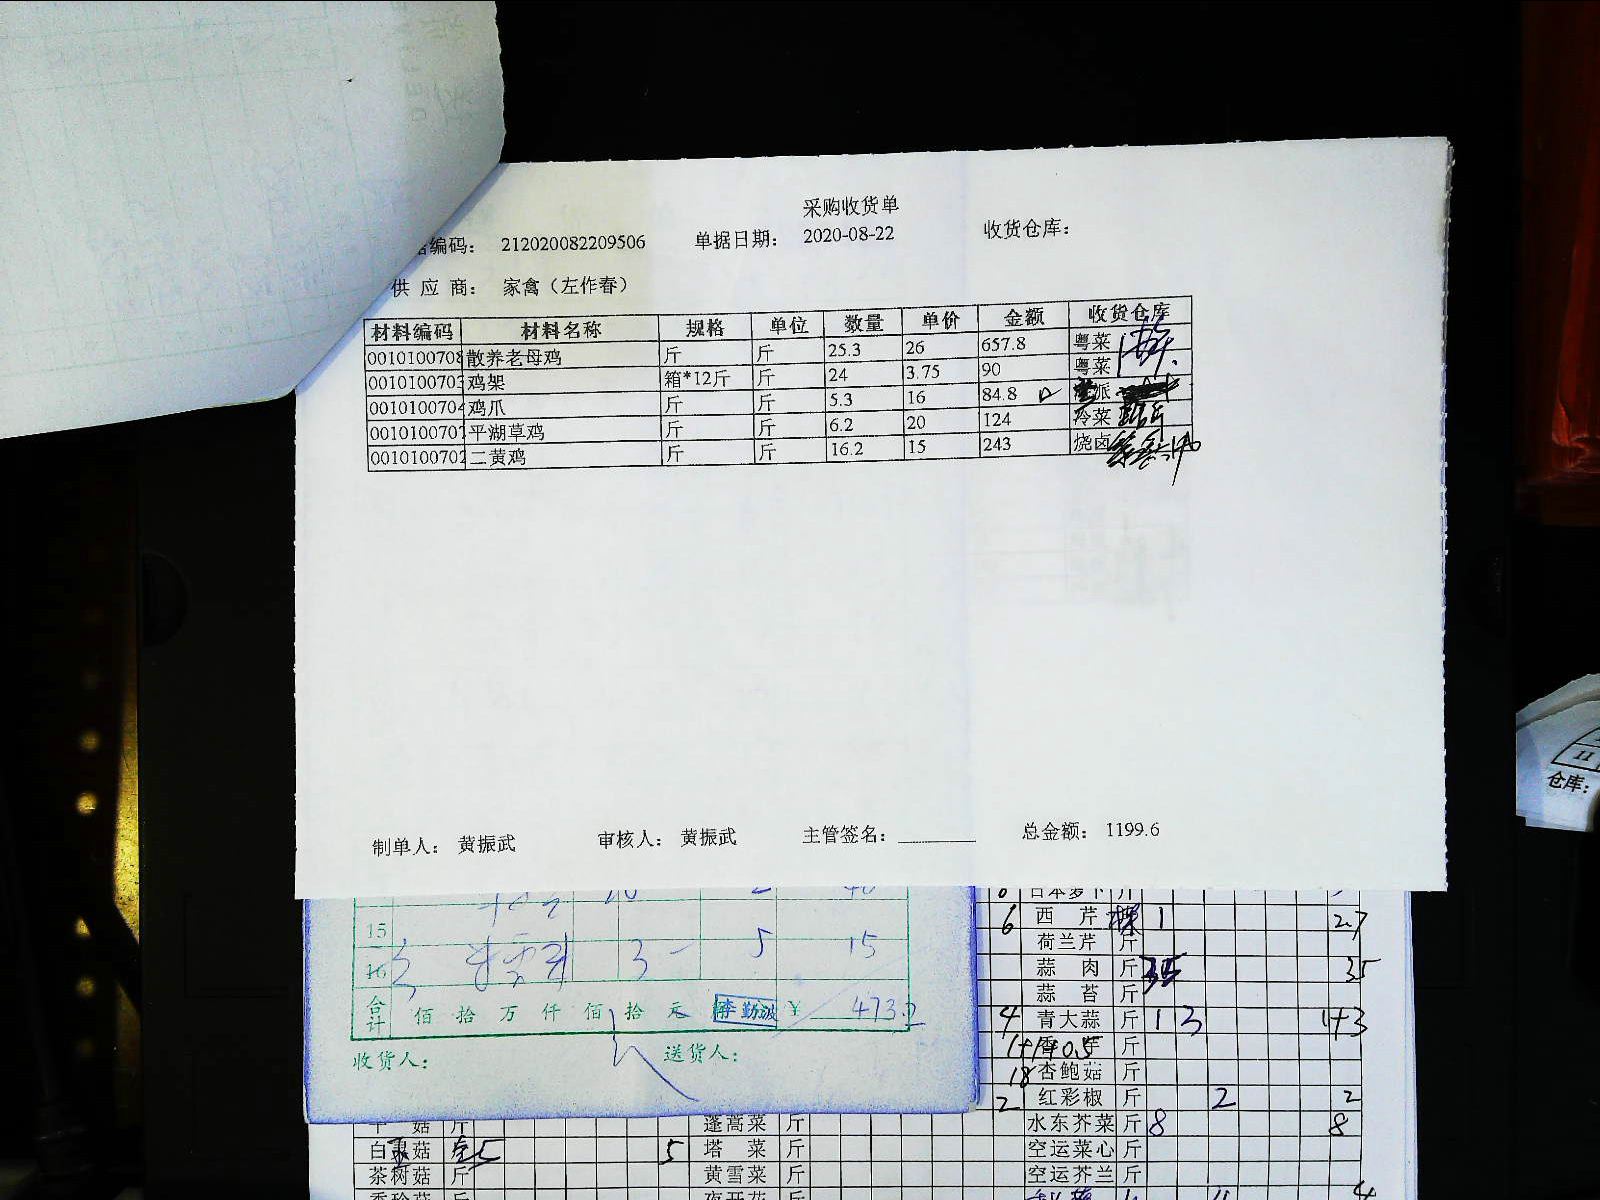 采购收货单
编码： 212020082209506 单据日期： 2020-08-22 收货仓库：
供 应 商： 家禽（左作春）
材料编码 材料名称 规格 单位 数量 单价 金额 收货仓库
0010100708 散养老母鸡 斤 斤 25.3 26 657.8 粤菜
0010100703 鸡架 箱*12斤 斤 24 3.75 90 粤菜
0010100704 鸡爪 斤 斤 5.3 16 84.8 派
0010100707 平湖草鸡 斤 斤 6.2 20 124 冷菜
0010100702 二黄鸡 斤 斤 16.2 15 243 烧卤
制单人： 黄振武 审核人： 黄振武 主管签名： 总金额： 1199.6
15
16 3 5 15
合计 佰 拾 万 仟 佰 拾 元 李勤波 ¥ 473.2
收货人： 送货人：
日本萝卜 斤
6 西 芹 1 2.7
荷兰芹 斤
蒜 肉 斤 35 35
蒜 苔 斤
4 青大蒜 斤 1 3 1+3
斤
18 杏鲍菇 斤
2 红彩椒 斤 2 2
蓬蒿菜 斤 水东芥菜 斤 8 8
白 菇 5 5 塔 菜 斤 空运菜心 斤
茶树菇 斤 黄雪菜 斤 空运芥兰 斤
4
11
仓库：